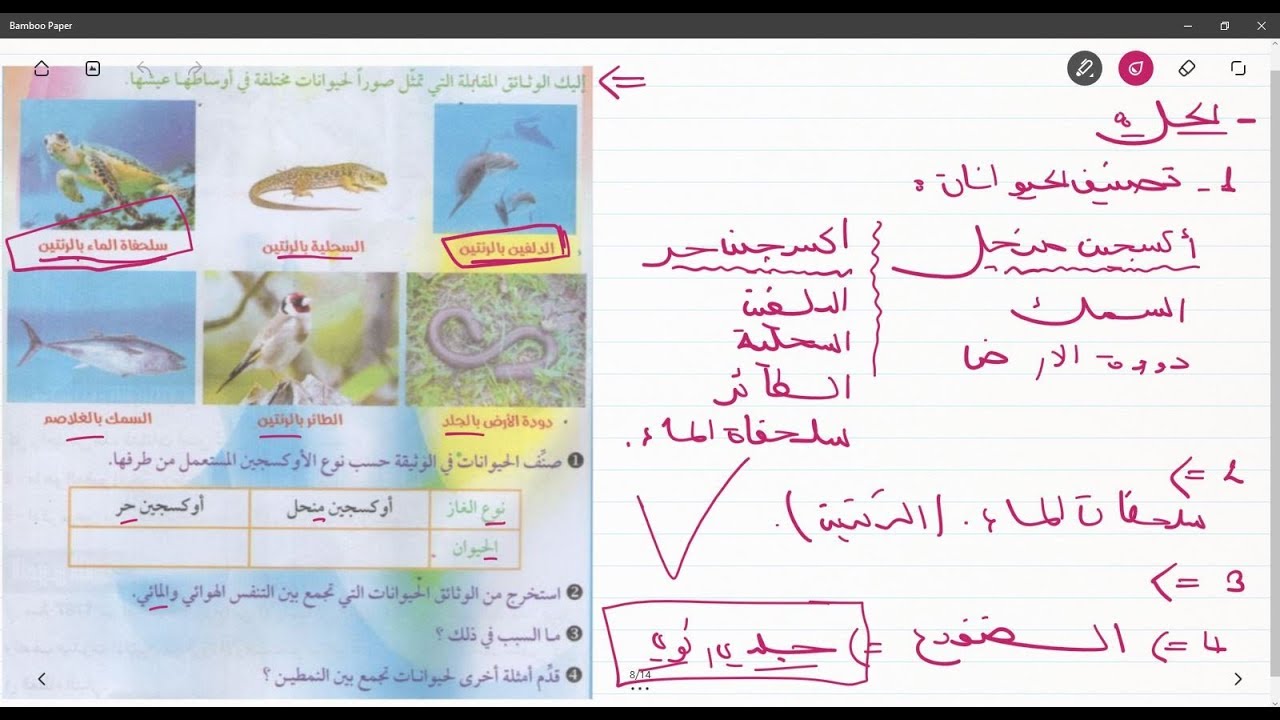 Bamboo Paper
إليك الوثائق المقابلة التي تمثّل صوراً لحيوانات مختلفة في أوساطها عيشها.
الدلفين بالرئتين
السحلية بالرئتين
سلحفاة الماء بالرئتين
دودة الأرض بالجلد
الطائر بالرئتين
السمك بالغلاصم
❶ صنِّف الحيوانات في الوثيقة حسب نوع الأوكسجين المستعمل من طرفها.
نوع الغاز أوكسجين منحل أوكسجين حر
الحيوان
❷ استخرج من الوثائق الحيوانات التي تجمع بين التنفس الهوائي والمائي.
❸ ما السبب في ذلك ؟
❹ قدِّم أمثلة أخرى لحيوانات تجمع بين النمطين ؟
- الحل:
1- تصنيف الحيوانات:
أكسجين منحل
السمك
دودة الارض
اكسجين حر
الدلفين
السحلية
الطائر
سلحفاة الماء.
2 =>
سلحفات الماء. (الرئتين).
3 =>
4 => الضفدع => جلدي،
8/14